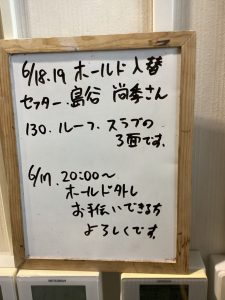 6/18.19 ホールド入替
セッター.島谷 尚季さん
130.ルーフ.スラブの
3面です。
6/17. 20:00〜
ホールド外し
お手伝いできる方
よろしくです。